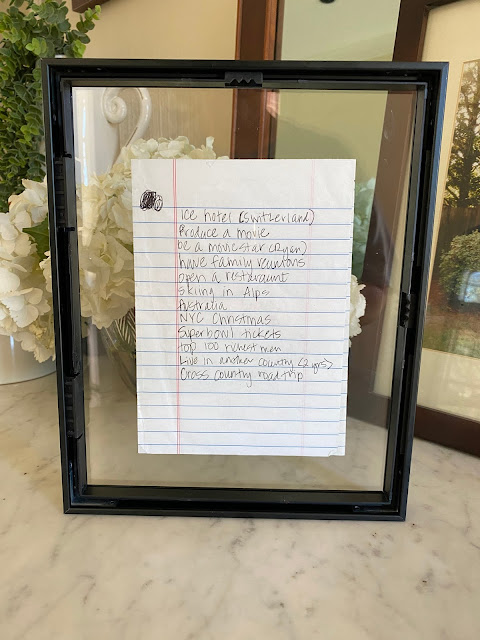 Ice hotel (Switzerland)
Produce a movie
be a moviestar (Ryan)
have family reuntons
open a restaraunt
skiing in Alps
Australia
NYC Christmas
Superbowl tickets
top 100 richest men
Live in another country (2 yrs)
Cross country road trip